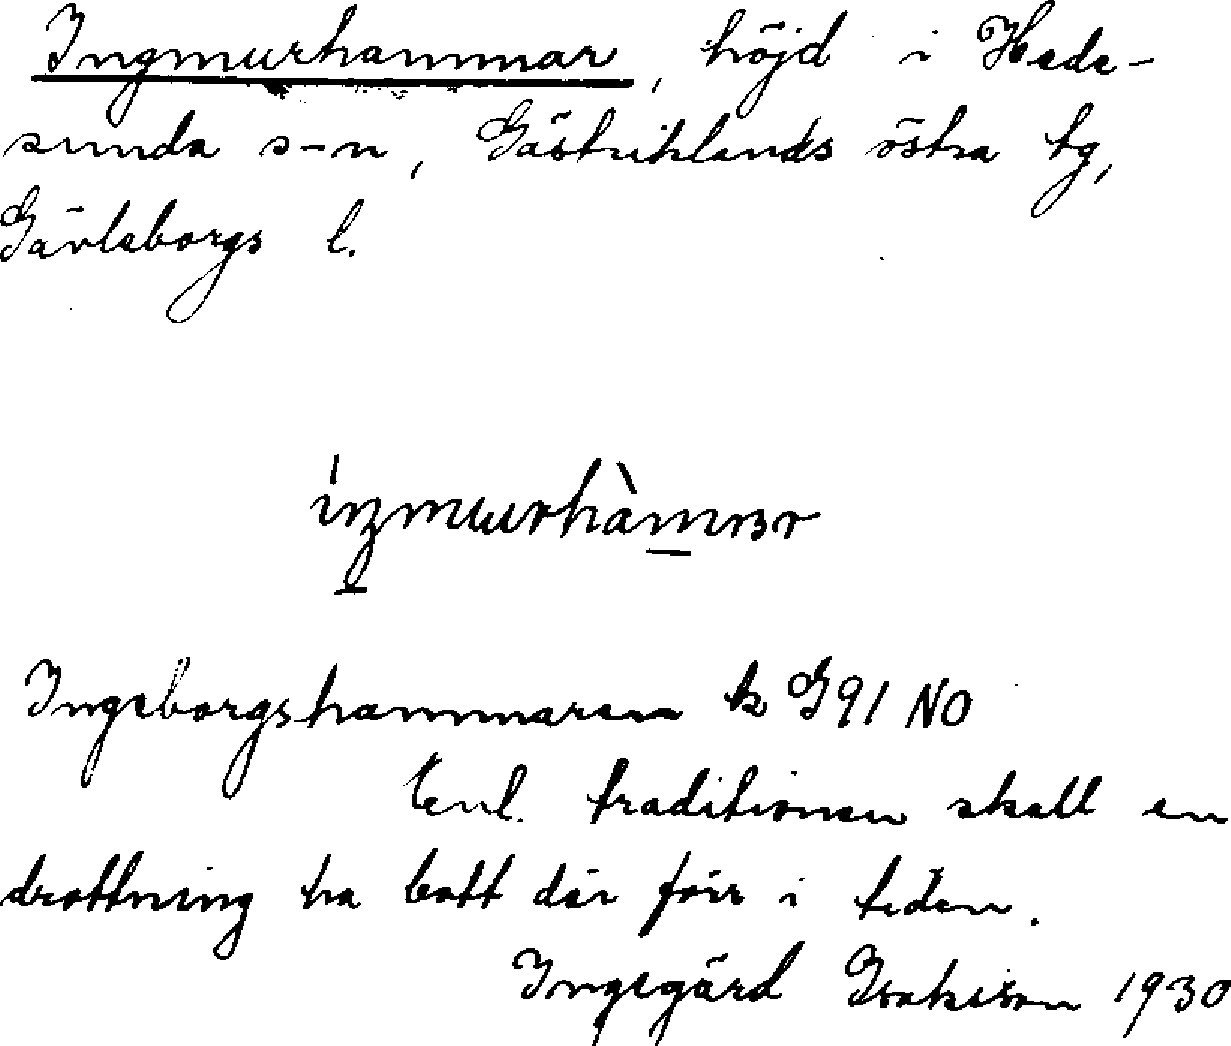 Ingmurhammar, höjd i Hede-
sunda s-n, Gästriklands östra tg,
Gävleborgs l.
Ingeborgshammaren k G91 NO
Enl. traditionen skall en
drottning ha bott där förr i tiden.
Ingegärd Isakson 1930